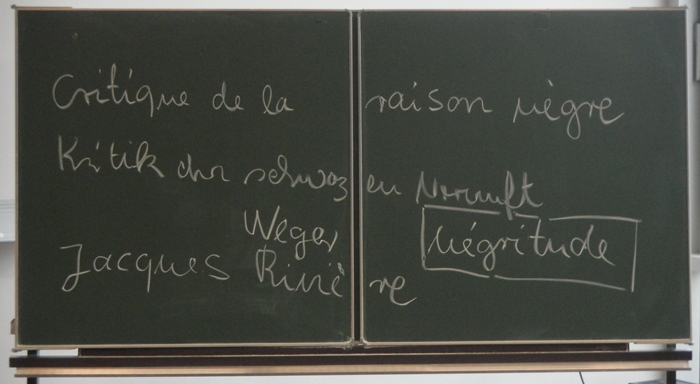 Critique de la raison nègre
Kritik der schwarzen Vernunft
Weger
négritude
Jacques Rivière